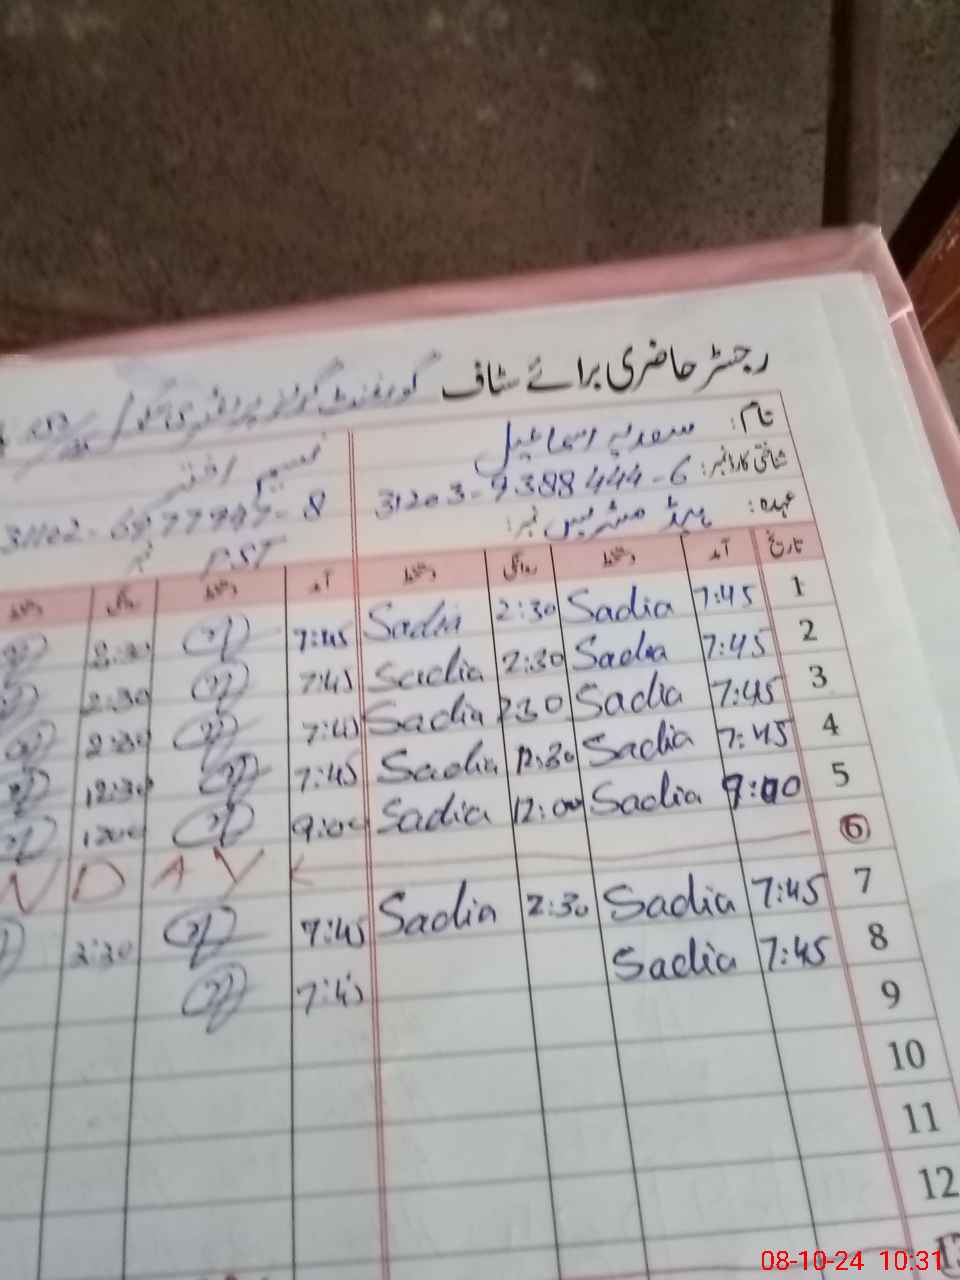 رجسٹر حاضری برائے سٹاف گورنمنٹ گرلز پرائمری سکول
نام: سعدیہ اسماعیل
نسیم اختر
شناختی کارڈ نمبر: 31203-9388444-6
عہدہ: ہیڈ مسٹریس نمبر:
PST
تاریخ آمد دستخط روانگی دستخط آمد دستخط روانگی دستخط
1 7:45 Sadia 2:30 Sadia 7:45 2:30
2 7:45 Sadia 2:30 Sadia 7:45 2:30
3 7:45 Sadia 2:30 Sadia 7:45 2:30
4 7:45 Sadia 12:30 Sadia 7:45 12:30
5 9:00 Sadia 12:00 Sadia 9:00 1200
6 N D A Y
7 7:45 Sadia 2:30 Sadia 7:45 2:30
8 7:45 Sadia 7:45
9
10
11
12
08-10-24 10:31